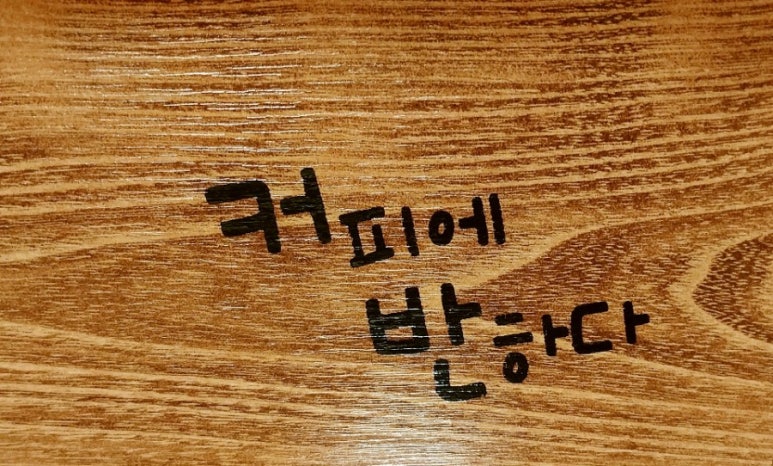 커피에
반하다